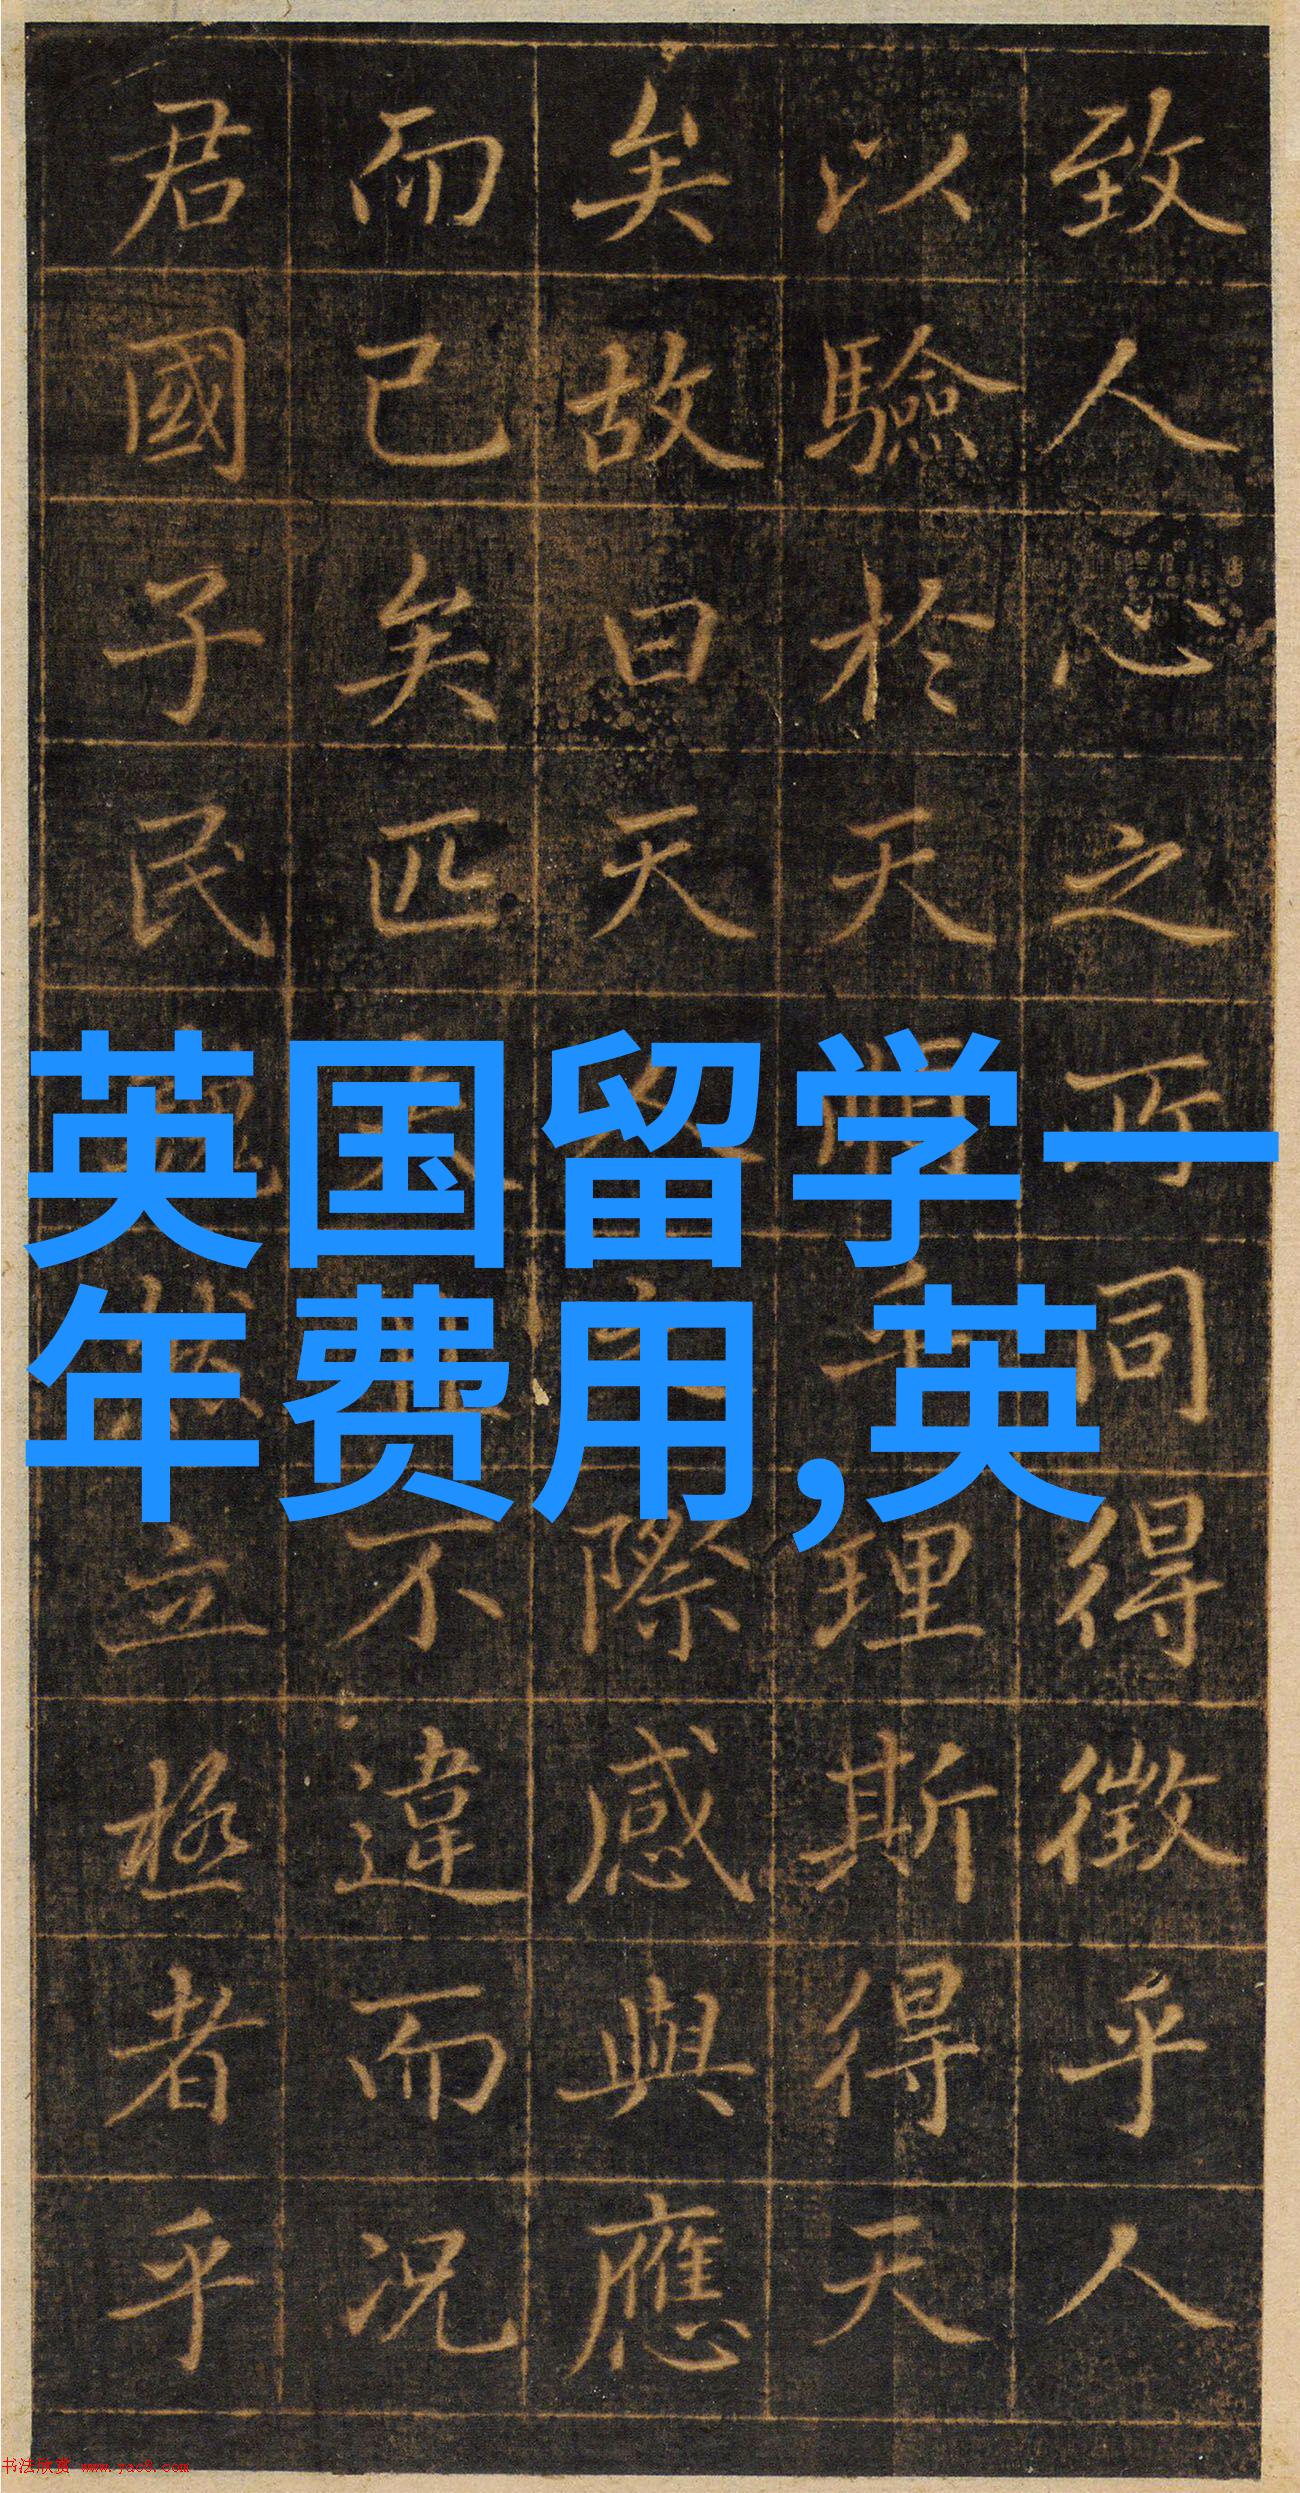 致人心之所同得徵乎人
以驗於天順乎理斯得天
矣故曰天人之際感與應
而已矣匹夫不違而况
君國子民巍然立極者乎
英国留学一
年费用,英
书法欣赏 www.yac8.com